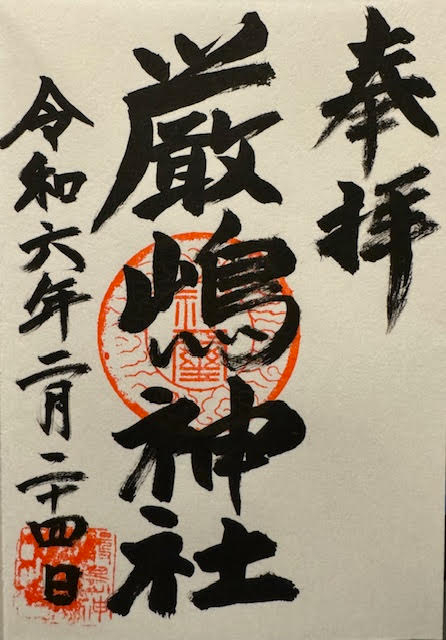 奉拝
厳嶋神社
令和六年二月二十四日